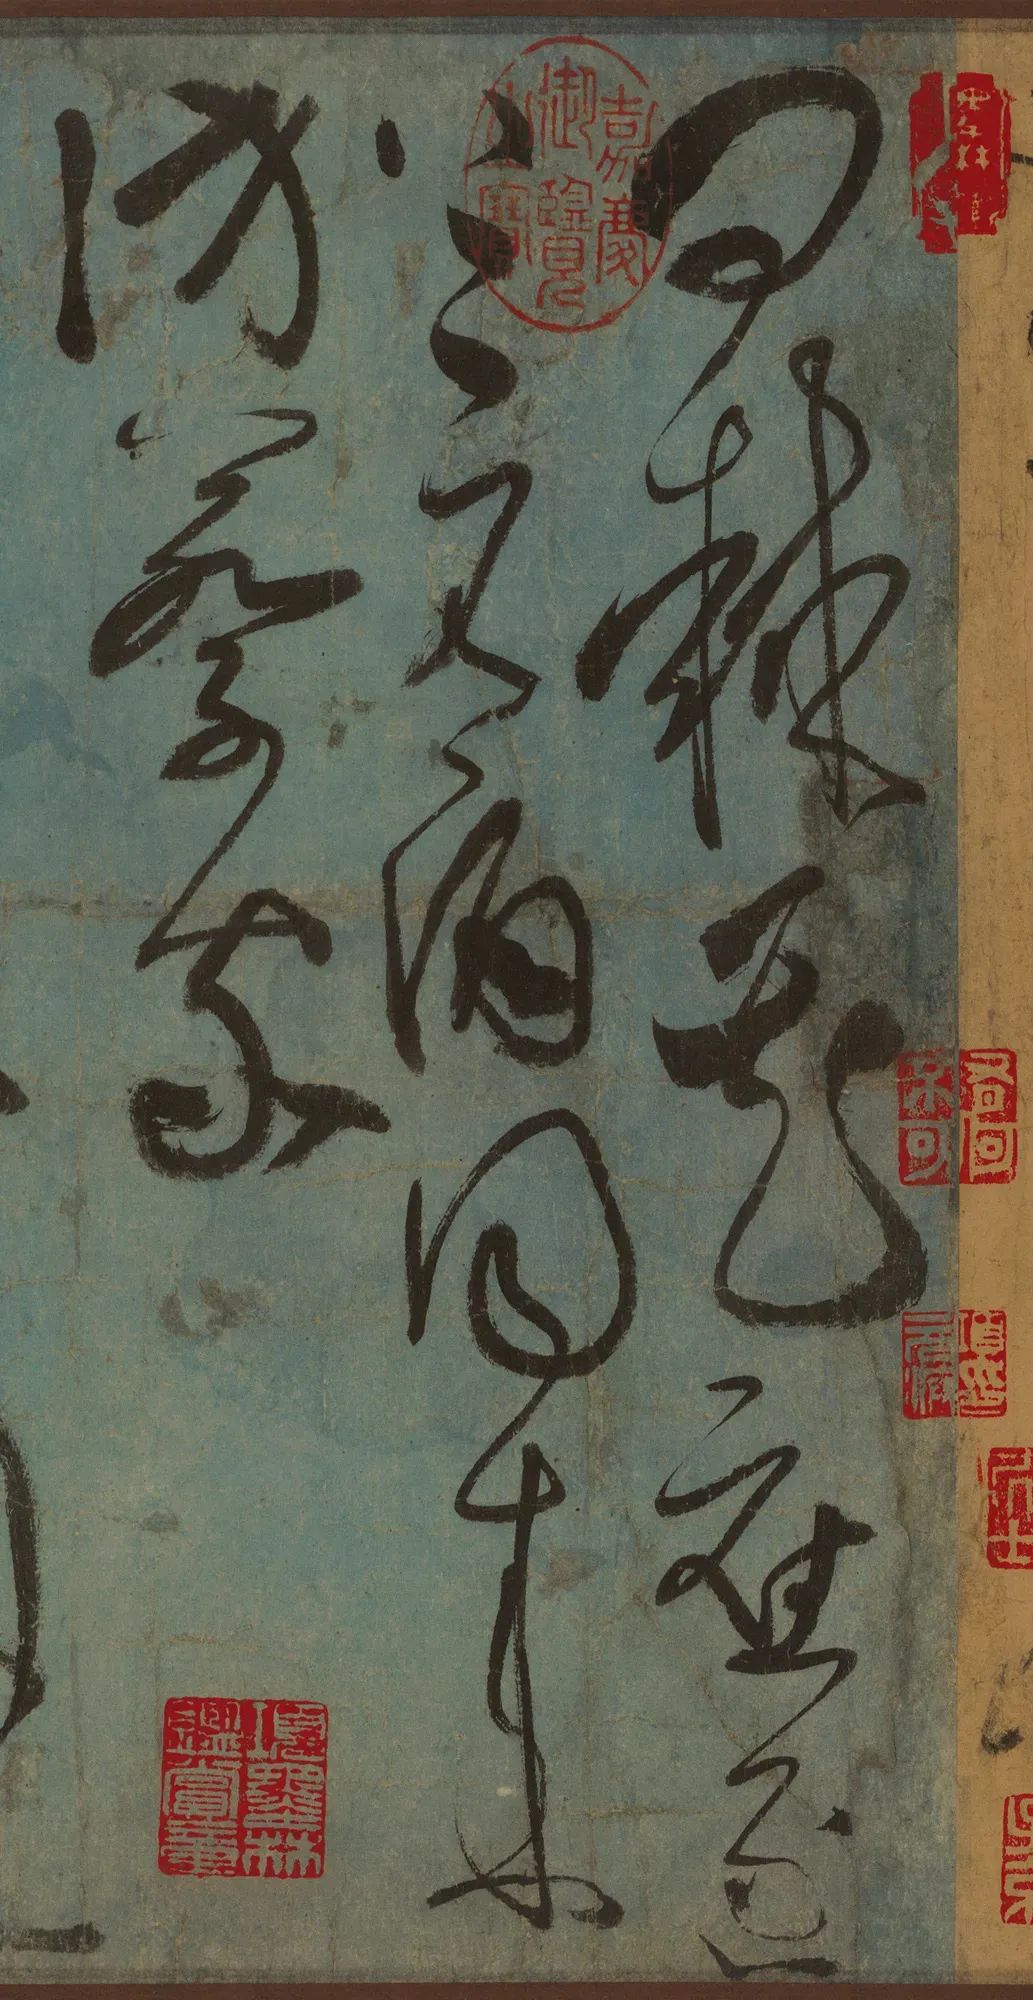 問棘花應逐
上元酒同來
訪蔡家
嘉慶御覽之寶
項墨林鑑賞章